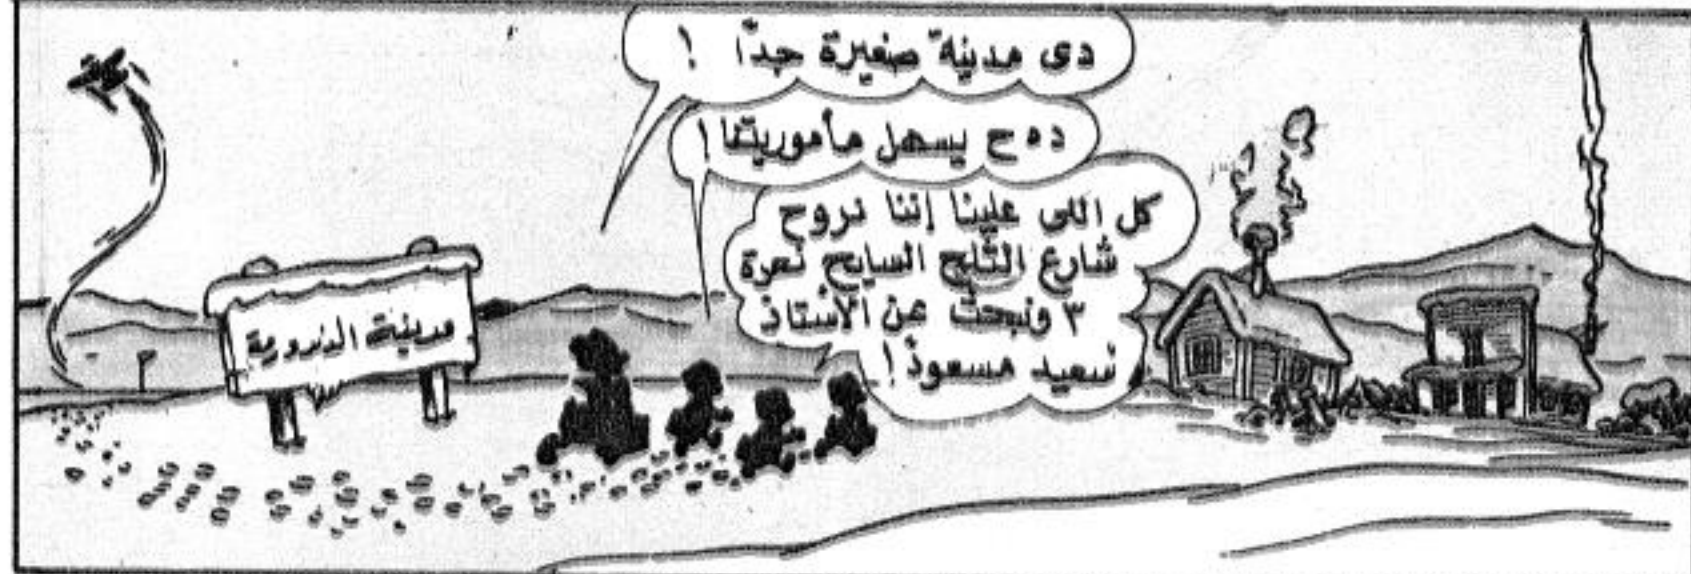 دى مدينة صغيرة جدّا !
ده ح يسهل مأموريتنا !
كل اللى علينا إننا نروح
شارع الثلج السايح نمرة
٣ ونبحث عن الأستاذ
سعيد مسعود !
مدينة